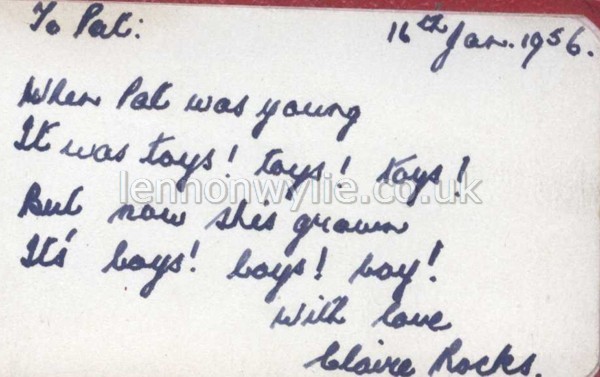 To Pat:
16th Jan. 1956.
When Pat was young
It was toys! toys! toys!
lennonwylie.co.uk
But now she's grown
It's boys! boys! boy!
With love
Claire Rocks.